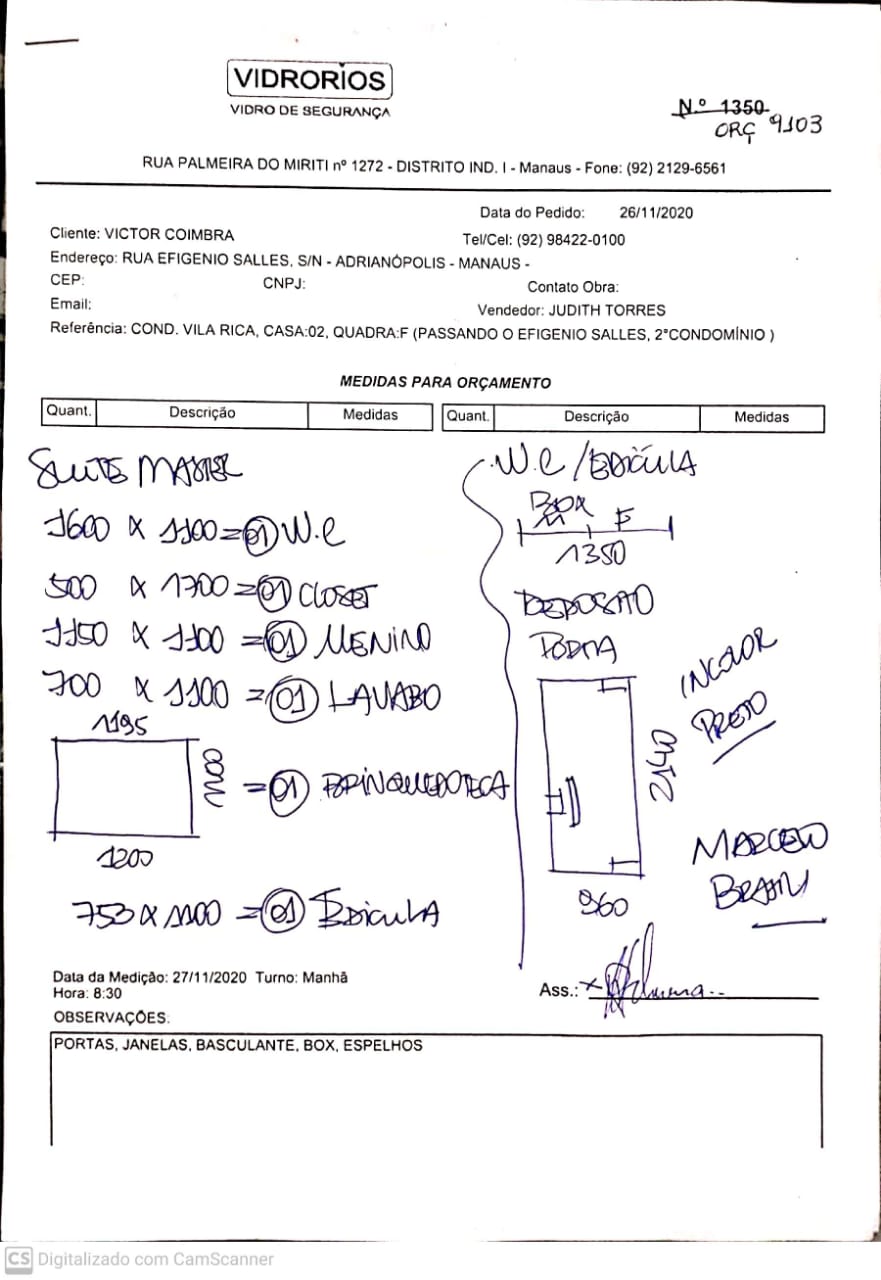 VIDRORIOS
VIDRO DE SEGURANÇA
N.º 1350
ORÇ 9103
RUA PALMEIRA DO MIRITI nº 1272 - DISTRITO IND. I - Manaus - Fone: (92) 2129-6561
Data do Pedido: 26/11/2020
Cliente: VICTOR COIMBRA
Tel/Cel: (92) 98422-0100
Endereço: RUA EFIGENIO SALLES, S/N - ADRIANÓPOLIS - MANAUS -
CEP: CNPJ: Contato Obra:
Email: Vendedor: JUDITH TORRES
Referência: COND. VILA RICA, CASA:02, QUADRA:F (PASSANDO O EFIGENIO SALLES, 2°CONDOMÍNIO )
MEDIDAS PARA ORÇAMENTO
Quant. Descrição Medidas Quant. Descrição Medidas
SUITE MASTER
1600 X 1100 = 01 W.C
500 X 1700 = 01 CLOSET
1150 X 1100 = 01 MENINO
700 X 1100 = 01 LAVABO
1195
1100 = 01 BRINQUEDOTECA
1200
753 X 1100 = 01 EDICULA
W.C / EDÍCULA
BOX
M F
1350
DEPOSITO
PORTA
INCOLOR
PRETO
2140
960
MARCELO
BRASIL
Data da Medição: 27/11/2020 Turno: Manhã
Hora: 8:30
Ass.: x
OBSERVAÇÕES:
PORTAS, JANELAS, BASCULANTE, BOX, ESPELHOS
CS Digitalizado com CamScanner